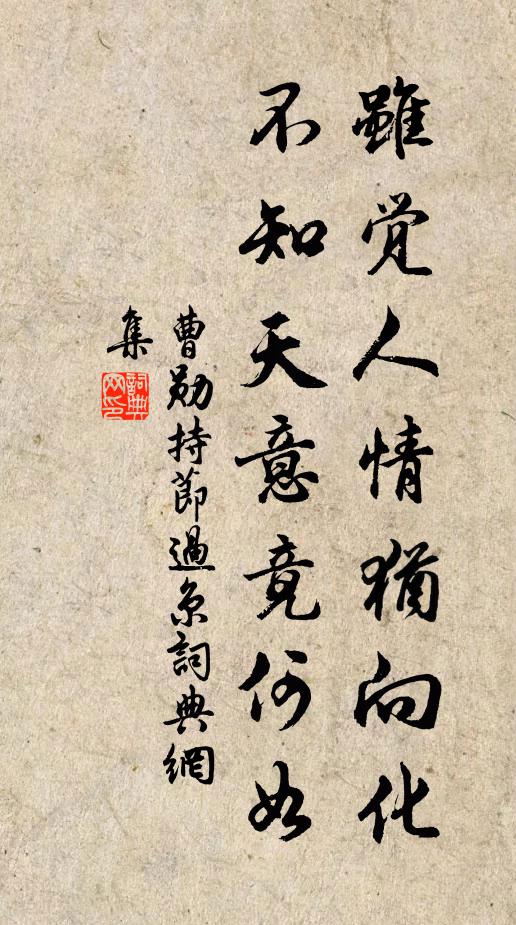 雖覺人情猶向化
不知天意竟何如
曹勛持節過京詞典網
集
詞典
网印